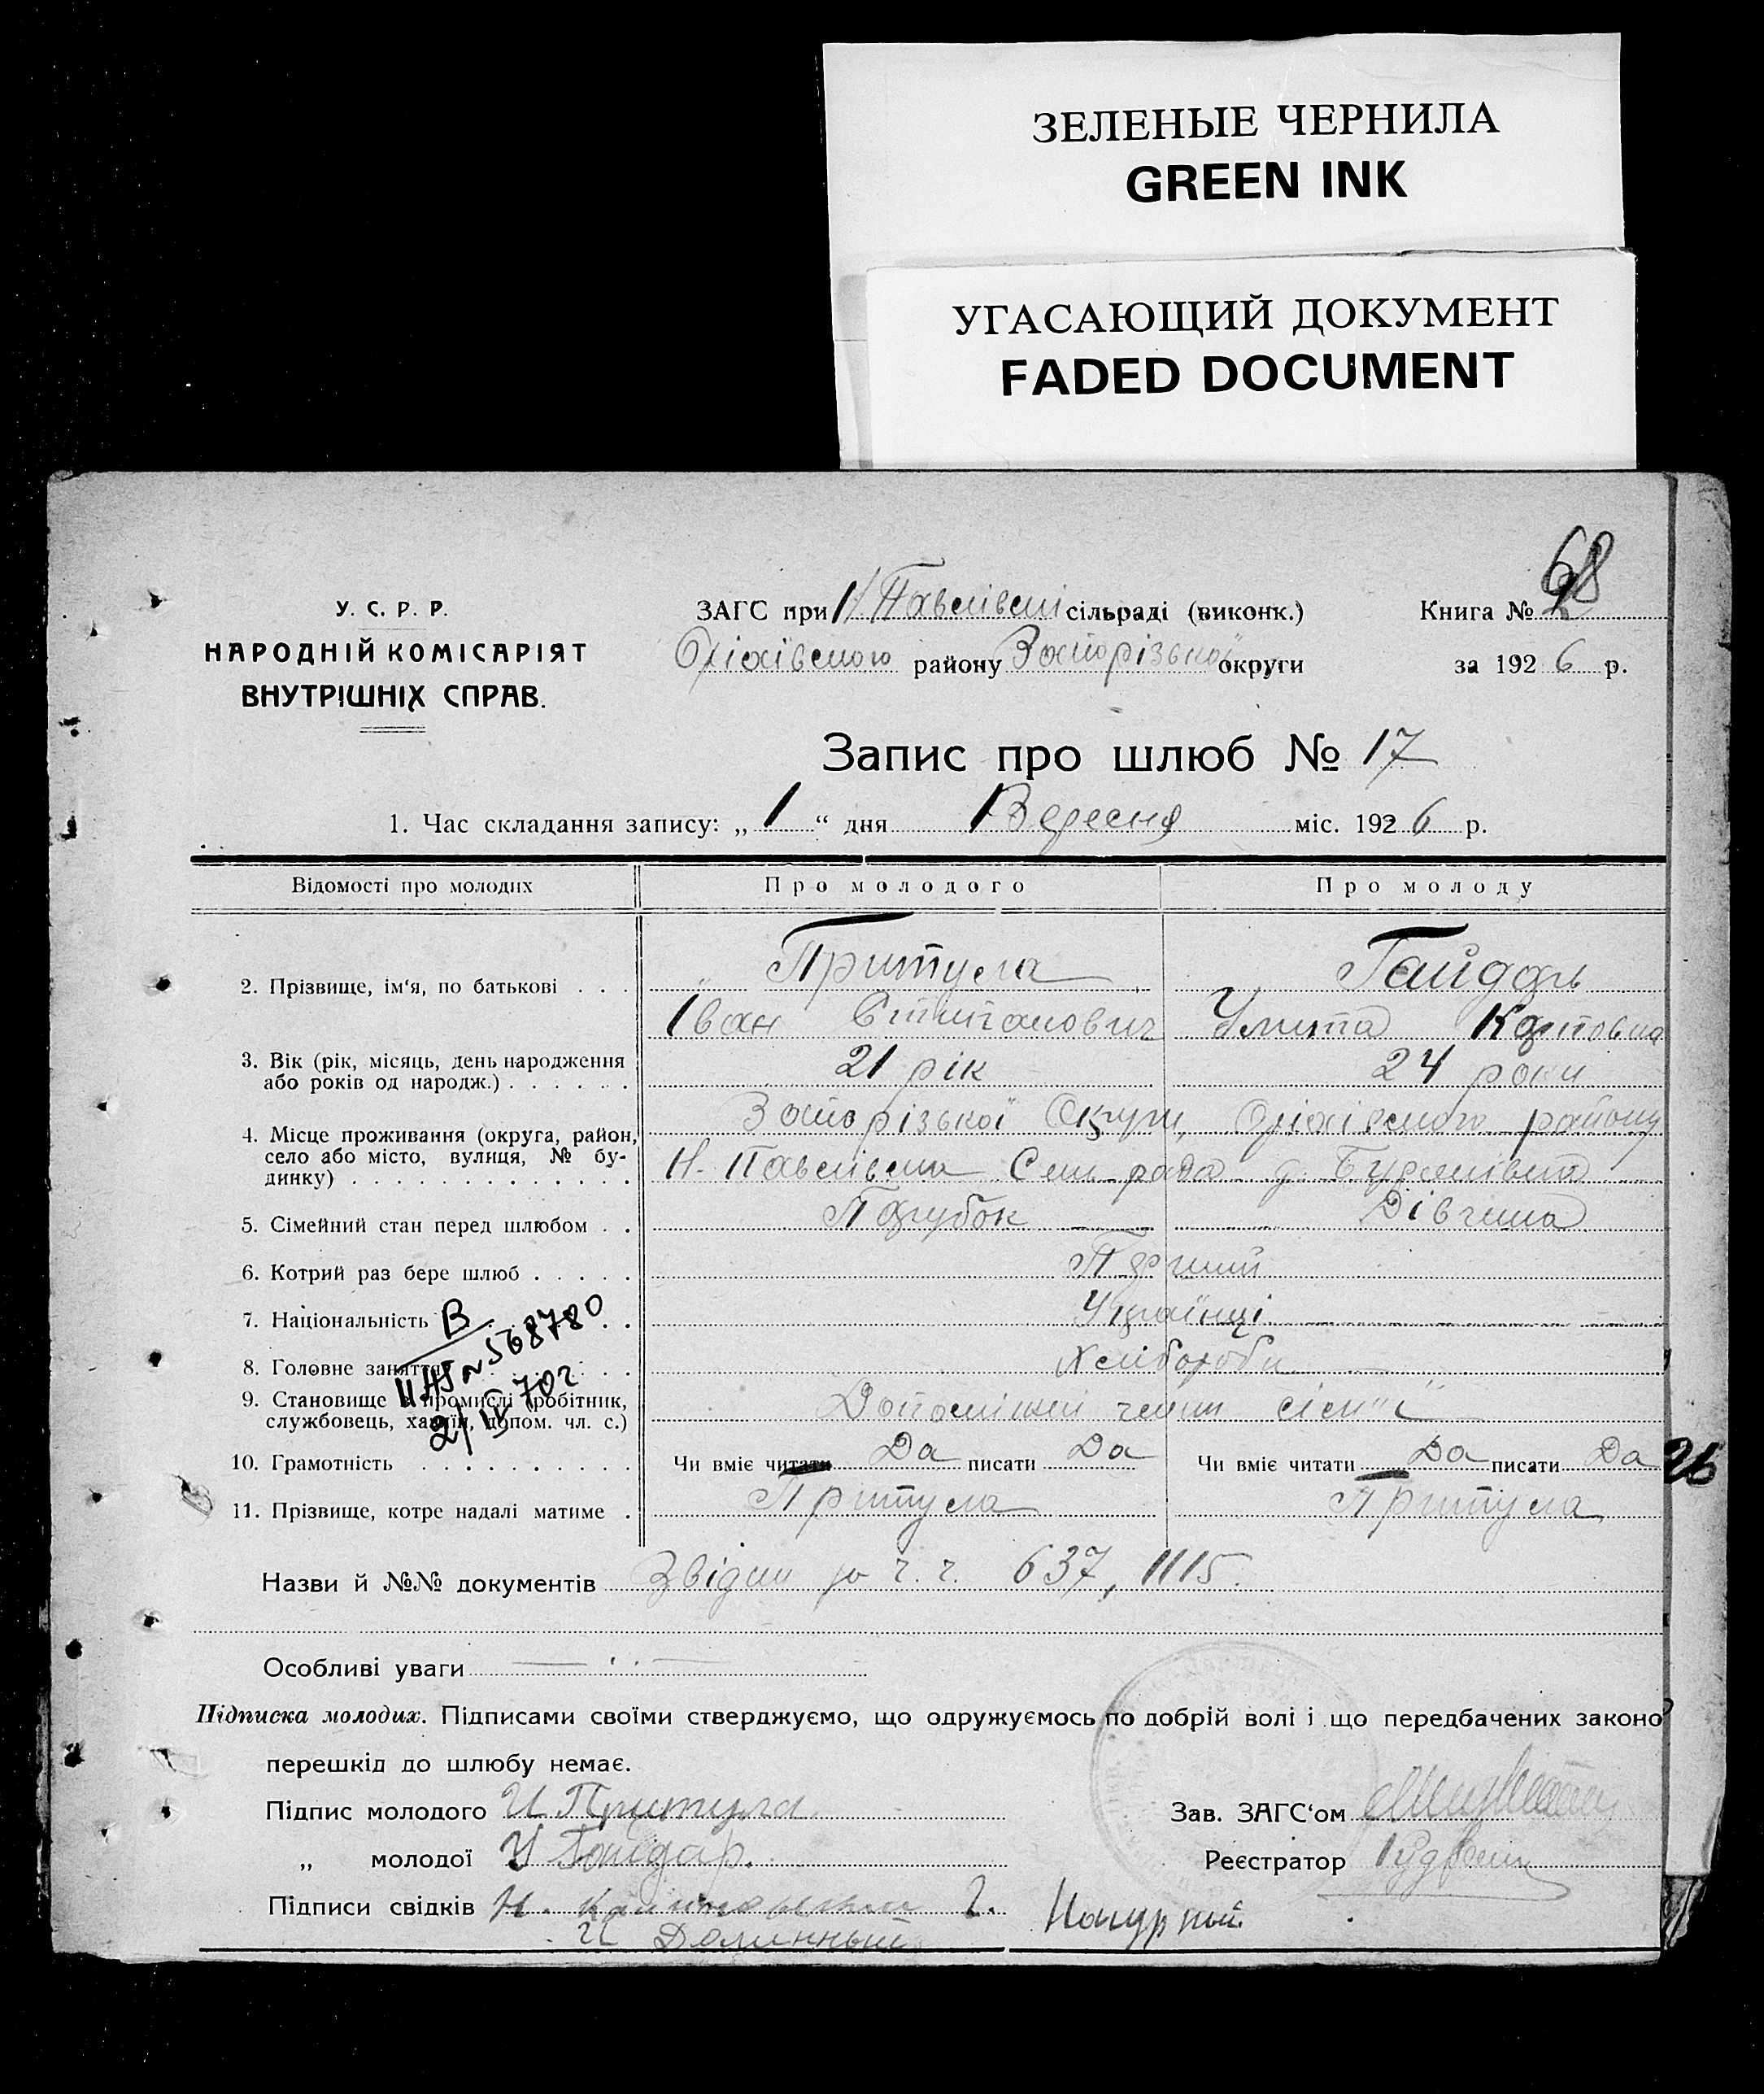 ЗЕЛЕНЫЕ ЧЕРНИЛА
GREEN INK
УГАСАЮЩИЙ ДОКУМЕНТ
FADED DOCUMENT
68
У. С. Р. Р.
НАРОДНІЙ КОМІСАРІЯТ
ВНУТРІШНІХ СПРАВ.
ЗАГС при Н. Павлівській сільраді (виконк.)
Книга №
Оріхівського району Запорізької округи
за 1926 р.
Запис про шлюб № 17
1. Час складання запису: „ 1 “ дня Вересня міс. 1926 р.
Відомості про молодих Про молодого Про молоду
2. Прізвище, ім'я, по батькові . . . Притула Гайдарь
Іван Карповна
3. Вік (рік, місяць, день народження
або років од народж.) . . . . . . 21 рік 24 роки
4. Місце проживання (округа, район, Запорізької Округи, Оріхівського району
село або місто, вулиця, № бу-
динку) . . . . . . . . . . . . . Н. Павлівська Сель-рада
5. Сімейний стан перед шлюбом . . Парубок Дівчина
6. Котрий раз бере шлюб . . . . . Перший
7. Національність . . Українці
8. Головне заняття Хлібороби
9. Становище в промислі (робітник,
службовець, хазяїн, допом. чл. с.) Допоміжні члени сім'ї
В
ЦАЅ № 568780
2/IV 70г
10. Грамотність . . . . . . . . . . Чи вміє читати Да писати Да Чи вміє читати Да писати Да
26
11. Прізвище, котре надалі матиме . Притула Притула
Назви й №№ документів Звідки за ч. ч. 637, 1115.
Особливі уваги
Підписка молодих. Підписами своїми стверджуємо, що одружуємось по добрій волі і що передбачених законо
перешкід до шлюбу немає.
Підпис молодого И Притула
Зав. ЗАГС'ом
„ молодої У Гайдар.
Реєстратор
Підписи свідків Н. Г.
И Долинный